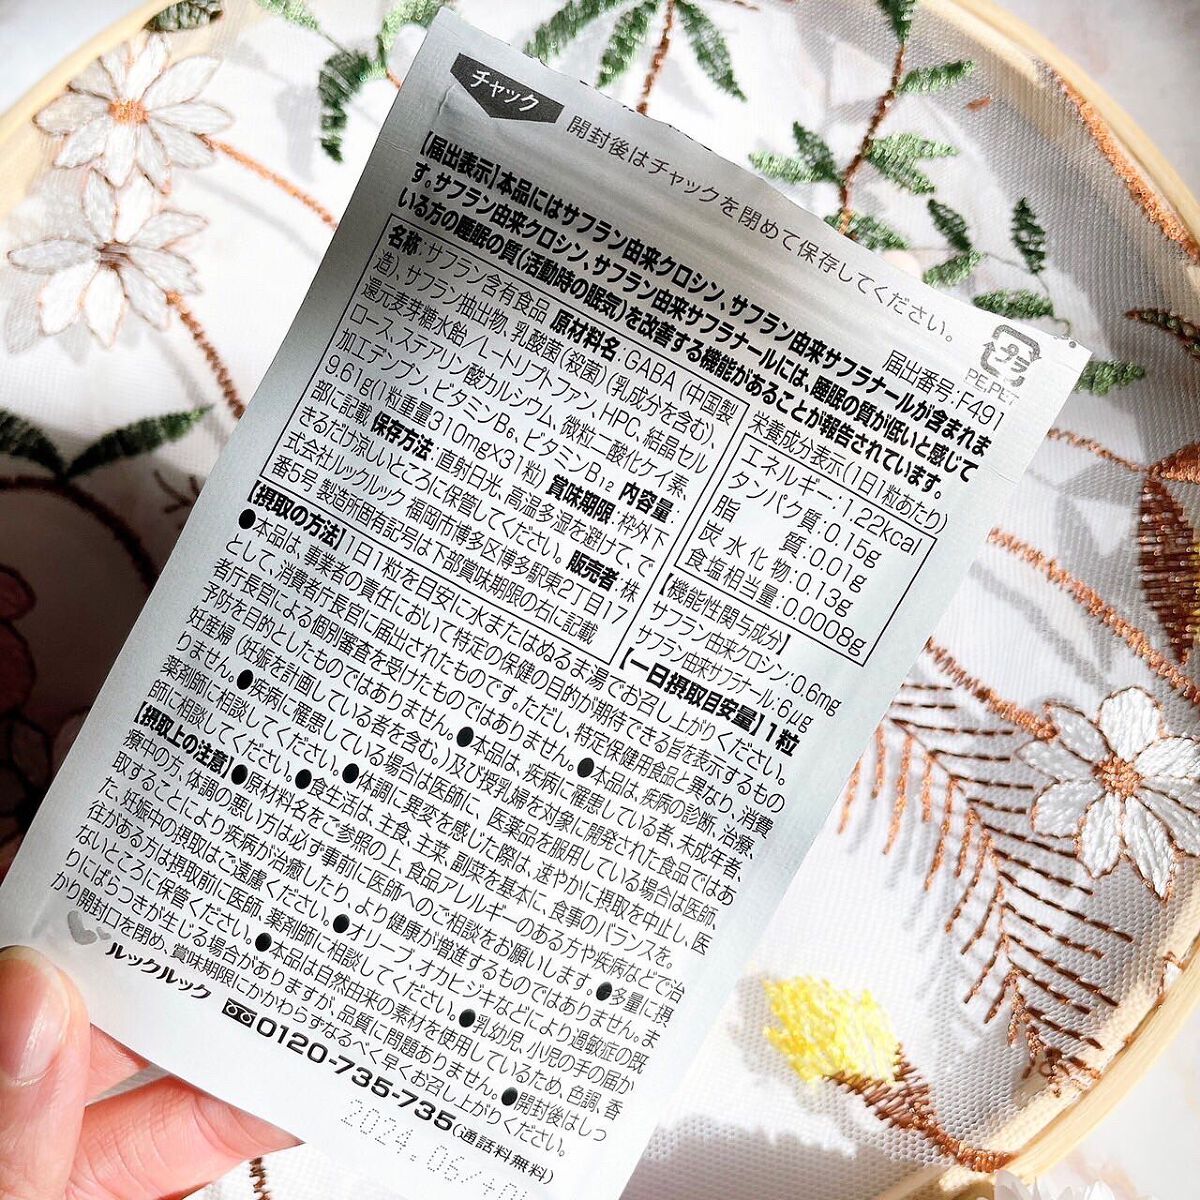 チャック
開封後はチャックを閉めて保存してください。
プラ
PE,PET
届出番号:F491
【届出表示】本品にはサフラン由来クロシン、サフラン由来サフラナールが含まれま
す。サフラン由来クロシン、サフラン由来サフラナールには、睡眠の質が低いと感じて
いる方の睡眠の質(活動時の眠気)を改善する機能があることが報告されています。
名称:サフラン含有食品 原材料名:GABA(中国製
造)、サフラン抽出物、乳酸菌(殺菌)(乳成分を含む)、
還元麦芽糖水飴/L-トリプトファン、HPC、結晶セル
ロース、ステアリン酸カルシウム、微粒二酸化ケイ素、
加工デンプン、ビタミンB₆、ビタミンB₁₂ 内容量:
9.61g(1粒重量310mg×31粒) 賞味期限:枠外下
部に記載 保存方法:直射日光、高温多湿を避けて、で
きるだけ涼しいところに保管してください。 販売者:株
式会社ルックルック 福岡市博多区博多駅東2丁目17
番5号 製造所固有記号は下部賞味期限の右に記載
栄養成分表示(1日1粒あたり)
エネルギー:1.22kcal
タンパク質:0.15g
脂質:0.01g
炭水化物:0.13g
食塩相当量:0.0008g
【機能性関与成分】
サフラン由来クロシン:0.6mg
サフラン由来サフラナール:6μg
【一日摂取目安量】1粒
【摂取の方法】1日1粒を目安に水またはぬるま湯でお召し上がりください。
●本品は、事業者の責任において特定の保健の目的が期待できる旨を表示するもの
として、消費者庁長官に届出されたものです。ただし、特定保健用食品と異なり、消費
者庁長官による個別審査を受けたものではありません。●本品は、疾病の診断、治療、
予防を目的としたものではありません。●本品は、疾病に罹患している者、未成年者、
妊産婦(妊娠を計画している者を含む。)及び授乳婦を対象に開発された食品ではあ
りません。●疾病に罹患している場合は医師に、医薬品を服用している場合は医師、
薬剤師に相談してください。●体調に異変を感じた際は、速やかに摂取を中止し、医
師に相談してください。●食生活は、主食、主菜、副菜を基本に、食事のバランスを。
【摂取上の注意】●原材料名をご参照の上、食品アレルギーのある方や疾病などで治
療中の方、体調の悪い方は必ず事前に医師へのご相談をお願いします。●多量に摂
取することにより疾病が治癒したり、より健康が増進するものではありません。ま
た、妊娠中の摂取はご遠慮ください。●オリーブ、オカヒジキなどにより過敏症の既
往がある方は摂取前に医師、薬剤師に相談してください。●乳幼児、小児の手の届か
ないところに保管ください。●本品は自然由来の素材を使用しているため、色調、香
りにばらつきが生じる場合がありますが、品質に問題ありません。●開封後はしっ
かり開封口を閉め、賞味期限にかかわらずなるべく早くお召し上がりください。
ルックルック
0120-735-735(通話料無料)